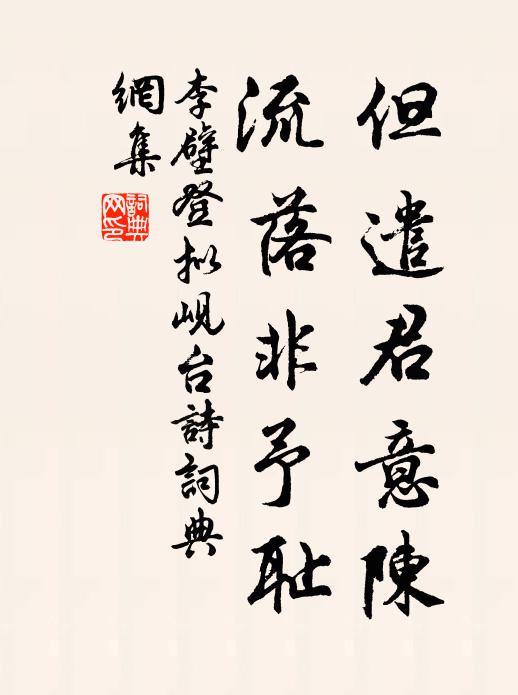 但遣君意陳
流落非予耻
李壁登拟岘台詩詞典
網集
詞典
网印